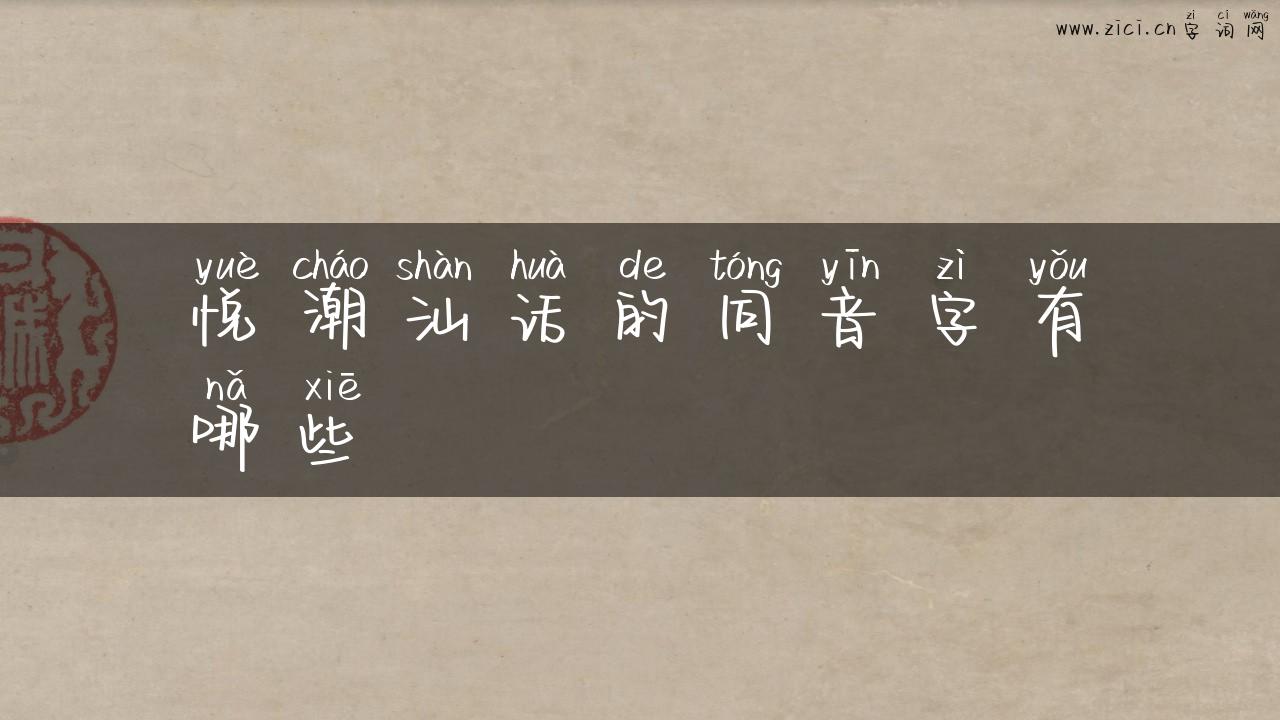 zì cí wǎng
www.zici.cn 字词网
yuè cháo shàn huà de tóng yīn zì yǒu
悦潮汕话的同音字有
nǎ xiē
哪些